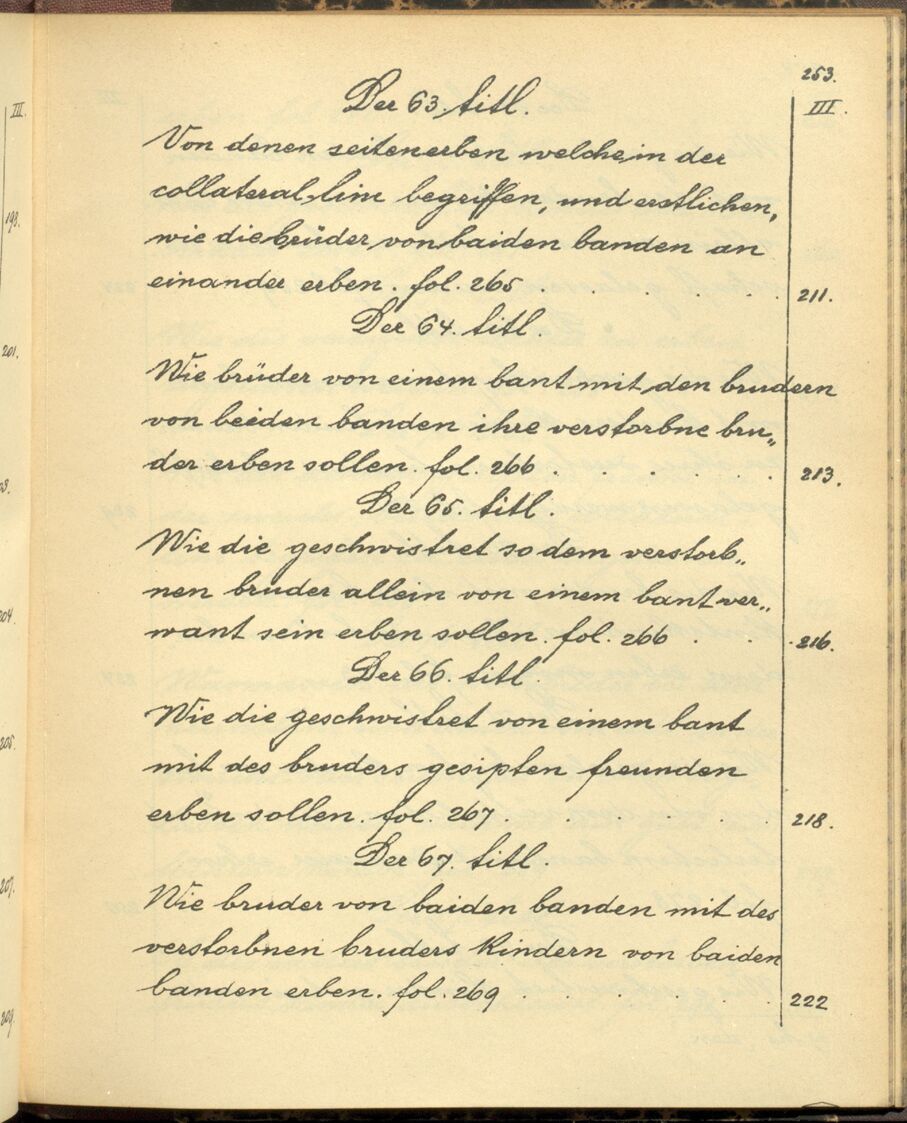 253.
III.
Der 63. titl.
Von denen seitenerben welche in der
collateral line begriffen, und erstlichen,
wie die brüder von baiden banden an
einander erben. fol. 265 . . . . . 211.
Der 64. titl.
Wie brüder von einem bant mit den brudern
von beeden banden ihre verstorbne bru„
der erben sollen. fol. 266 . . . 213.
Der 65. titl.
Wie die geschwistret so dem verstorb„
nen bruder allein von einem bant ver„
want sein erben sollen. fol. 266 . . . 216.
Der 66. titl.
Wie die geschwistret von einem bant
mit des bruders gesipten freunden
erben sollen. fol. 267 . . 218.
Der 67. titl
Wie bruder von baiden banden mit des
verstorbnen bruders Kindern von baiden
banden erben. fol. 269 . . . . 222
III.
193.
201.
03.
204
205.
207.
209.